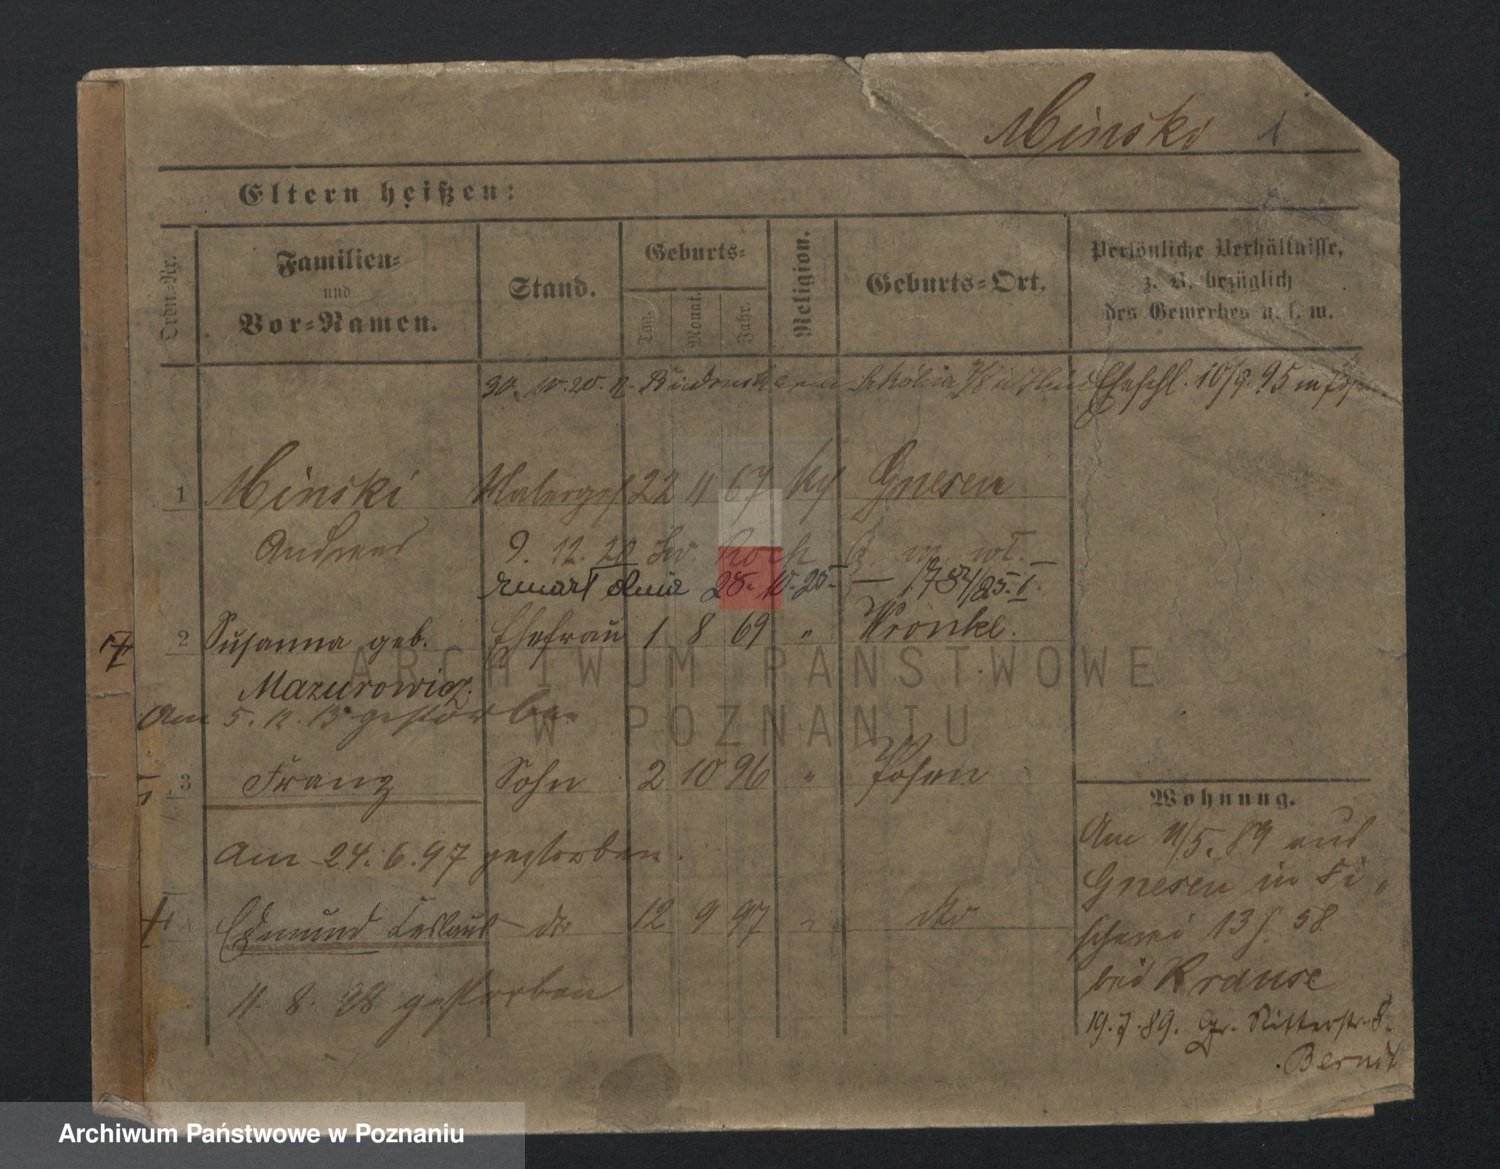 Minski 1
Eltern heißen:
Ordn.-Nr.
Familien-
und
Vor-Namen.
Stand.
Geburts-
Tag.
Monat.
Jahr.
Religion.
Geburts-Ort.
Persönliche Verhältnisse,
z. B. bezüglich
des Gewerbes u. s. w.
Eheschl. 10/9. 95 in
1 Minski Malergeh 22 11 67 Gnesen
Andreas
9. 12. 20
zmarł dnia 28. 10. 25. 1787/25. I.
2 Susanna geb. Ehefrau 1 8 69 " Wronke.
Mazurowicz.
Am 5. 12. 15 gestorben
3 Franz Sohn 2 10 96 " Posen
Am 24. 6. 97 gestorben.
Edmund Ceslaus dto 12 9 97 " dto
11. 8. 98 gestorben
Wohnung.
Am 11/5. 89 aus
Gnesen in Fi-
scherei 13 58
bei Krause
19. 7. 89. Gr. Ritterstr. 8.
Berndt
ARCHIWUM PAŃSTWOWE
W POZNANIU
Archiwum Państwowe w Poznaniu